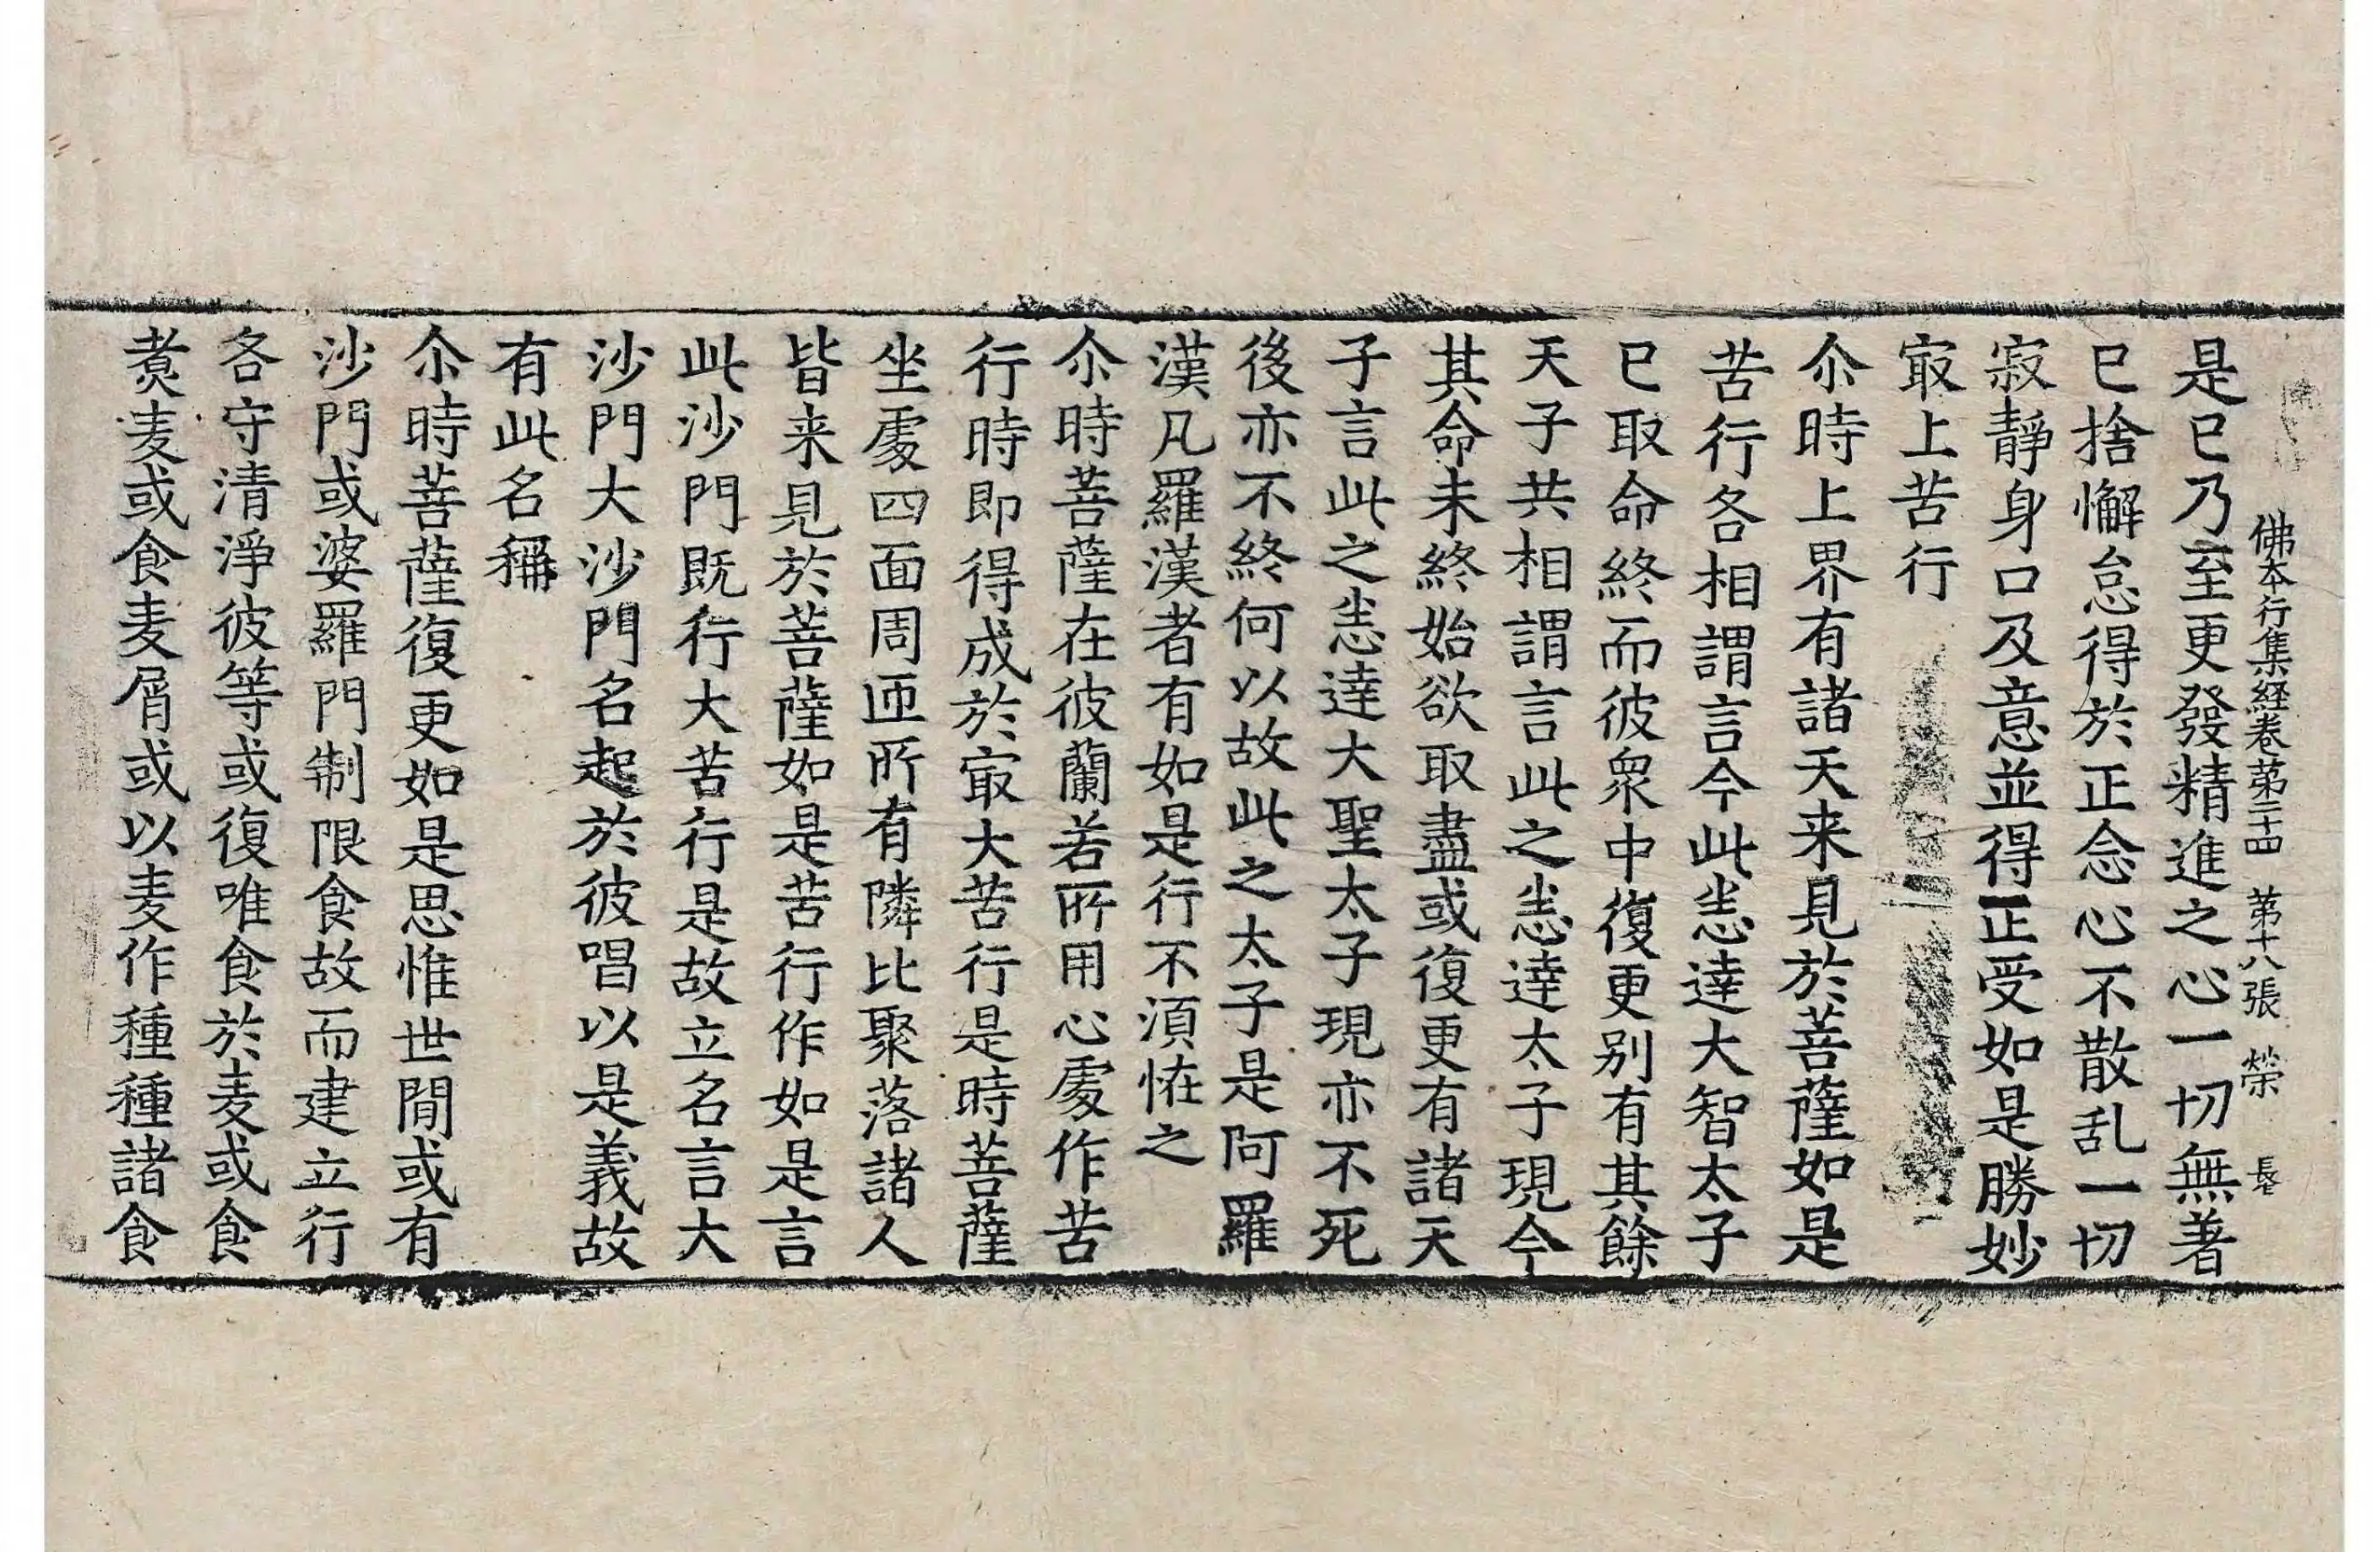 佛本行集經卷第二十四 第十八張 榮
是已乃至更發精進之心一切無著
已捨懈怠得於正念心不散乱一切
寂靜身口及意並得正受如是勝妙
冣上苦行
尒時上界有諸天来見於菩薩如是
苦行各相謂言今此悉達大智太子
已取命終而彼衆中復更别有其餘
天子共相謂言此之悉達太子現今
其命未終始欲取盡或復更有諸天
子言此之悉達大聖太子現亦不死
後亦不終何以故此之太子是阿羅
漢凡羅漢者有如是行不湏恠之
尒時菩薩在彼蘭若所用心處作苦
行時即得成於冣大苦行是時菩薩
坐處四面周迊所有隣比聚落諸人
皆来見於菩薩如是苦行作如是言
此沙門既行大苦行是故立名言大
沙門大沙門名起於彼唱以是義故
有此名稱
尒時菩薩復更如是思惟世間或有
沙門或婆羅門制限食故而建立行
各守清淨彼等或復唯食於麦或食
煑麦或食麦屑或以麦作種種諸食